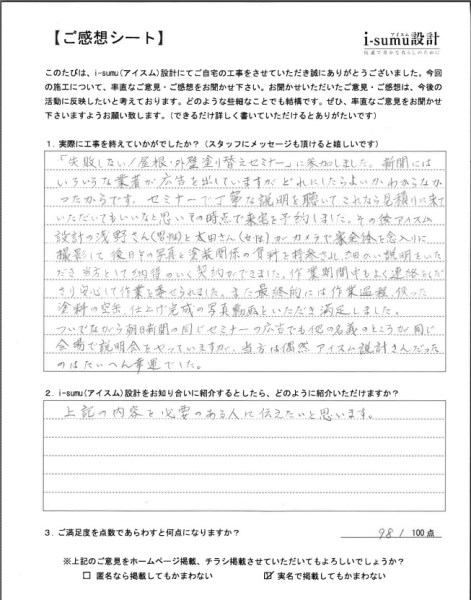 【ご感想シート】
アイスム
i-sumu設計
快適で豊かな暮らしのために
このたびは、i-sumu(アイスム)設計にてご自宅の工事をさせていただき誠にありがとうございました。今回
の施工について、率直なご意見・ご感想をお聞かせ下さい。お聞かせいただいたご意見・ご感想は、今後の
活動に反映したいと考えております。どのような些細なことでも結構です。ぜひ、率直なご意見をお聞かせ
下さいますようお願い致します。(できるだけ詳しく書いていただけるとありがたいです)
1. 実際に工事を終えていかがでしたか？(スタッフにメッセージも頂けると嬉しいです)
「失敗しない!屋根・外壁塗り替えセミナー」に参加しました。新聞には
いろいろな業者が広告を出していますが どれにしたらよいか わからなか
ったからです。セミナーで丁寧な説明を聴いて これなら見積りに来て
いただいてもいいなと思い その時点で来宅を予約しました。その後アイスム
設計の浅野さん(男性)と太田さん(女性)が カメラで家全体を念入りに
撮影して 後日その写真と塗装関係の資料を持参され 細かい説明をいた
だき 当方として納得のいく契約ができました。作業期間中もよく連絡をくだ
さり 安心して作業を委せられました。また最終的には作業過程、使った
塗料の空缶、仕上げ完成の写真動画をいただき 満足しました。
ついでながら 朝日新聞の同じセミナーの広告でも他の名義のところが 同じ
会場で説明会をやっていますが、当方は偶然アイスム設計さんだった
のはたいへん幸運でした。
2. i-sumu(アイスム)設計をお知り合いに紹介するとしたら、どのように紹介いただけますか？
上記の内容を必要のある人に伝えたいと思います。
3. ご満足度を点数であらわすと何点になりますか？ 98 / 100点
※上記のご意見をホームページ掲載、チラシ掲載させていただいてもよろしいでしょうか？
□ 匿名なら掲載してもかまわない ☑ 実名で掲載してもかまわない